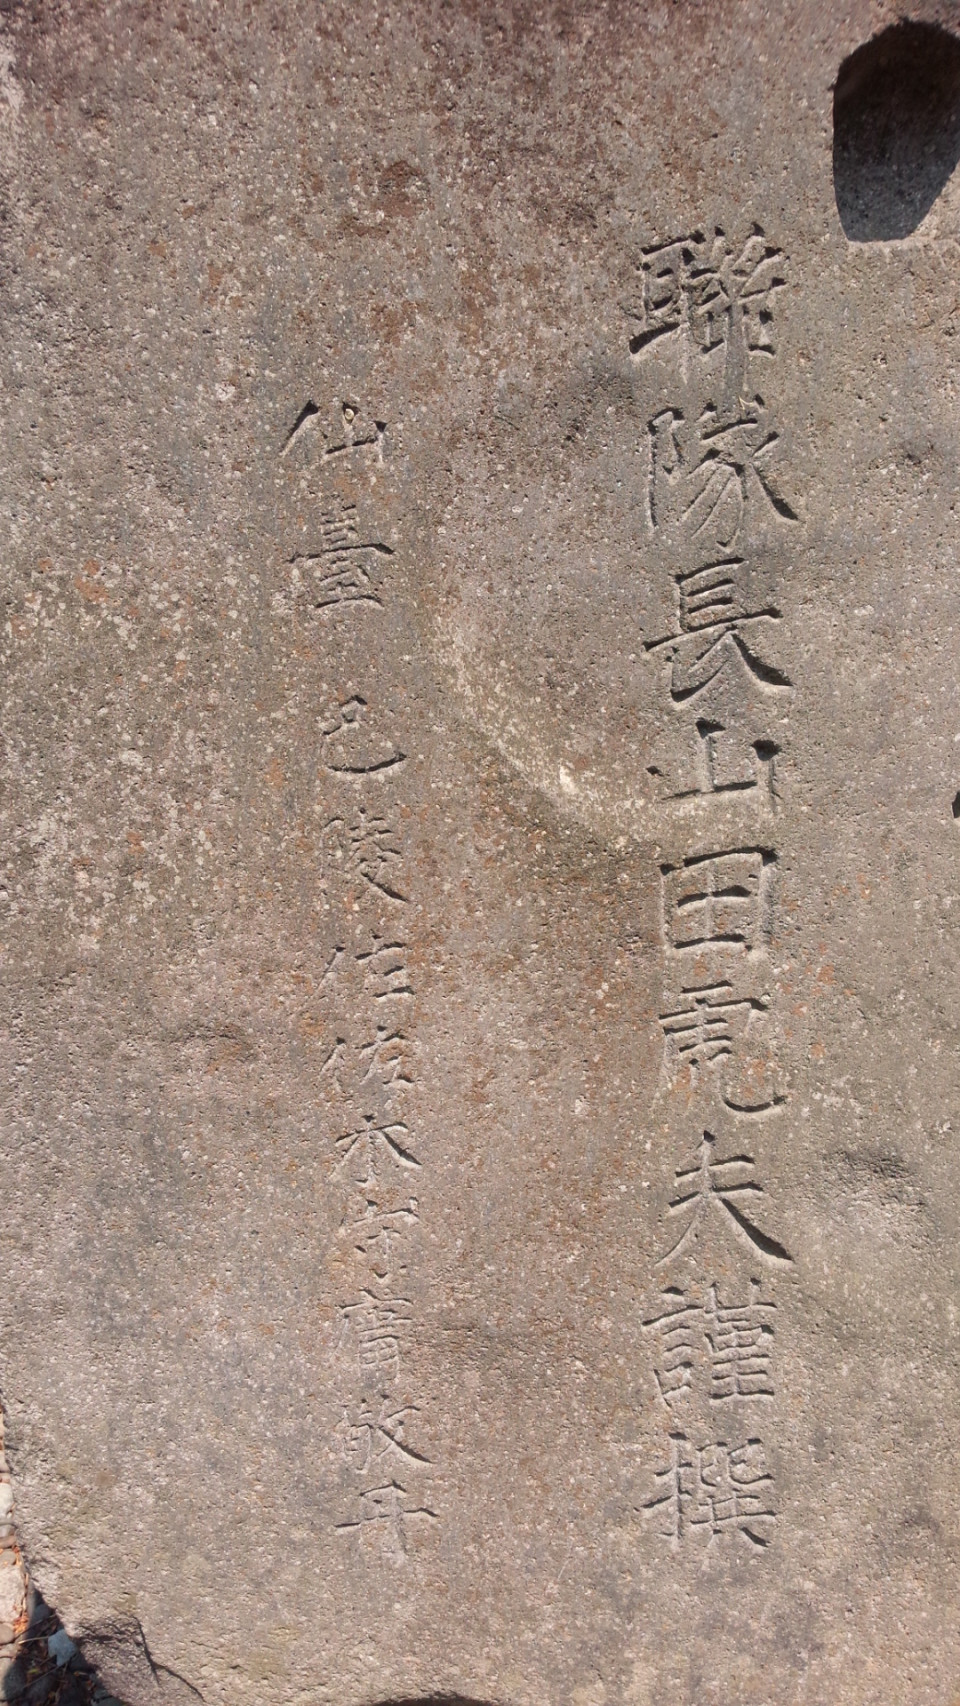 聯隊長山田虎夫謹撰
仙臺 邑陵 佐佐木守齋敬書